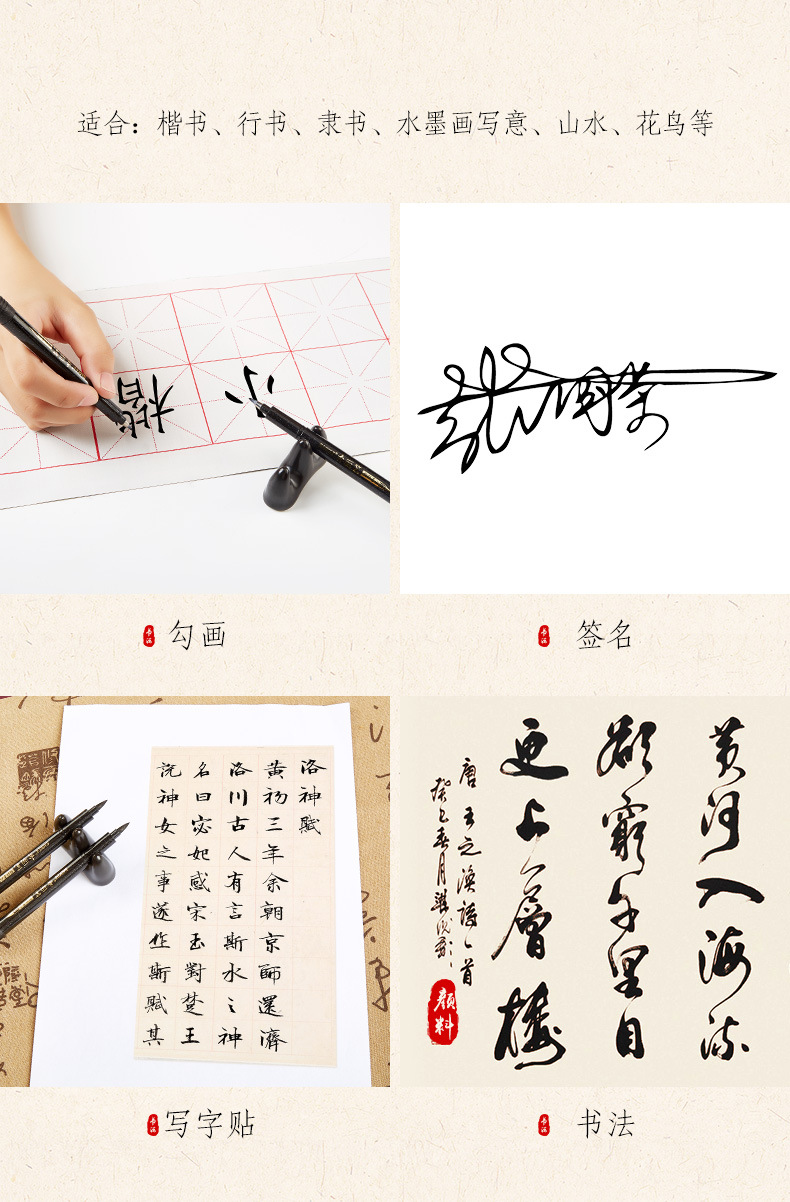 适合：楷书、行书、隶书、水墨画写意、山水、花鸟等
楷 小
书法 勾画
书法 签名
洛神賦
黄初三年余朝京師還濟
洛川古人有言斯水之神
名曰宓妃感宋玉對楚王
説神女之事遂作斯賦其
黄河入海流
欲窮千里目
更上一層樓
唐王之渙詩一首
癸巳春月
顔料
书法 写字贴
书法 书法